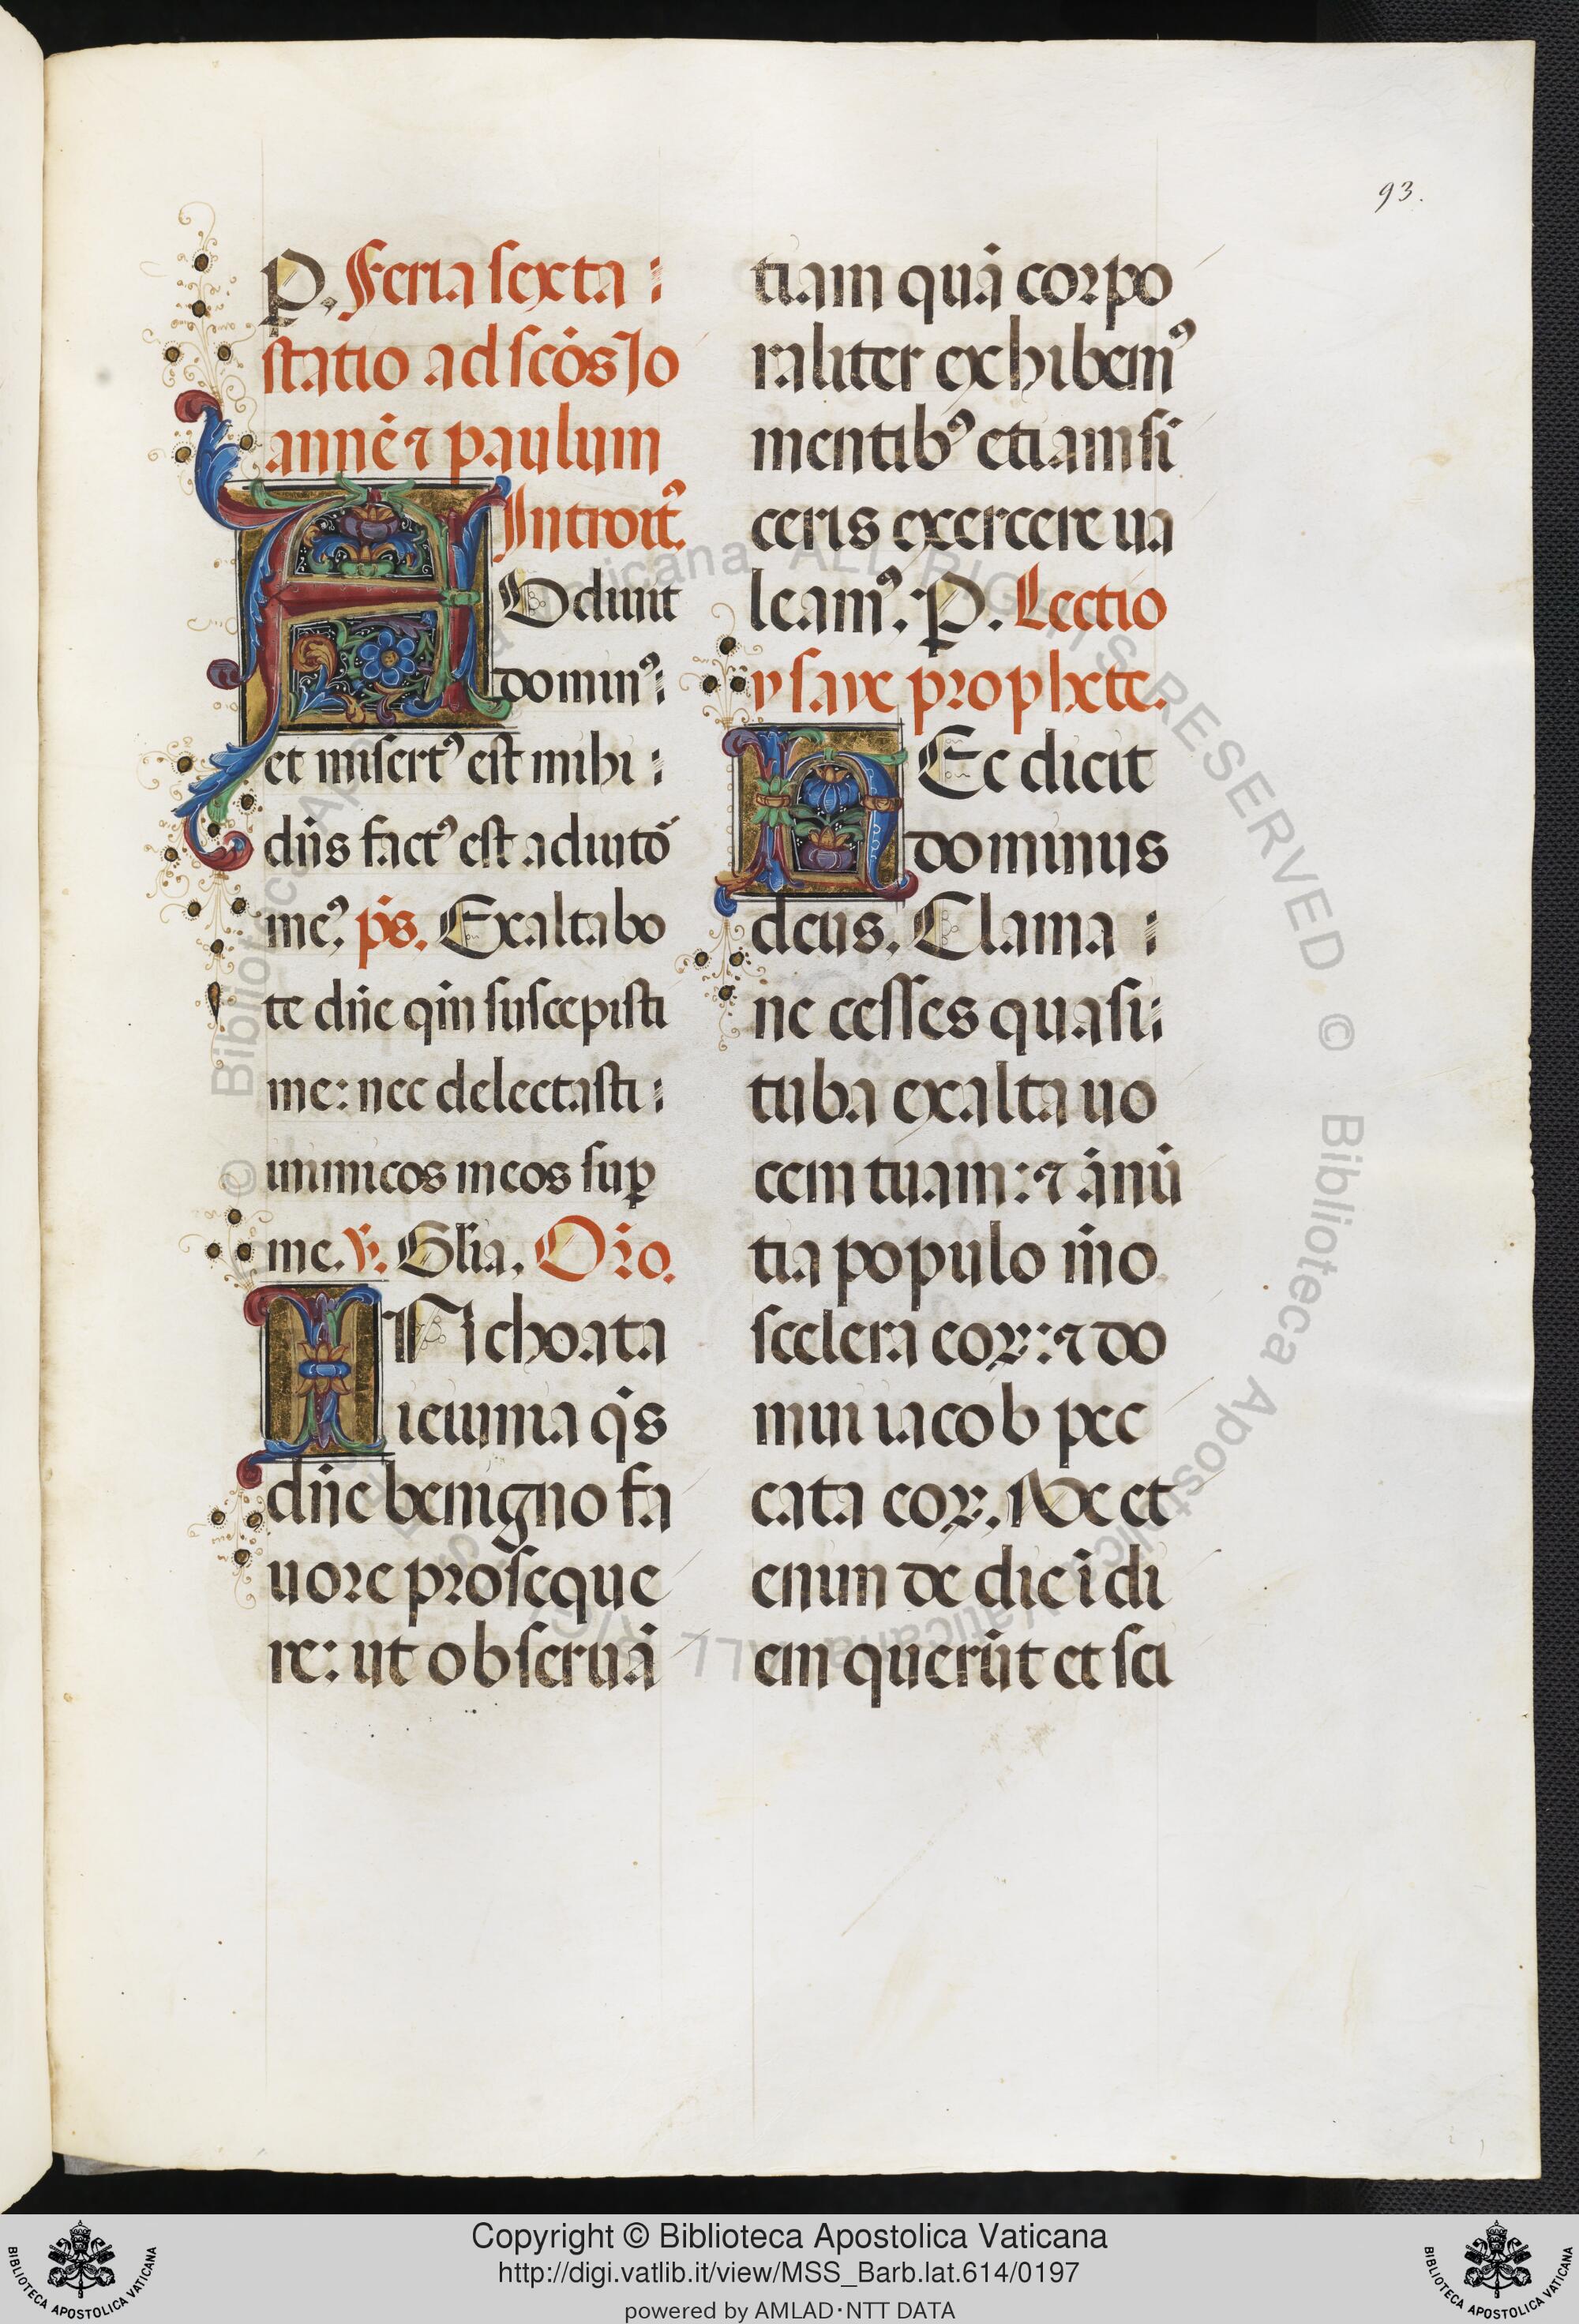 93.
P. Feria sexta
statio ad scōs Jo
annē ⁊ paulum
Introitꝰ.
AUdiuit
dominꝰ
et misertꝰ est mihi
dn̄s factꝰ est adiuto᷑
meꝰ. ps̄. Exaltabo
te dn̄e qm̄ suscepisti
me: nec delectasti
inimicos meos suꝑ
me. ℣. Gl̄ia. Or̄o.
INchoata
ieiunia q̄s
dn̄e benigno fa
uore proseque
re: ut obseruā
tiam quā corpo
raliter exhibemꝰ
mentibꝰ etiam sī
ceris exercere ua
leamꝰ. P. Lectio
ysaye prophete.
HEc dicit
dominus
deus. Clama
ne cesses quasi
tuba exalta uo
cem tuam: ⁊ ānū
tia populo m̄o
scelera eoꝝ: ⁊ do
mui iacob pec
cata eoꝝ. Me et
enim de die ī di
em querūt et sci
© Biblioteca Apostolica Vaticana ALL RIGHTS RESERVED
Copyright © Biblioteca Apostolica Vaticana
http://digi.vatlib.it/view/MSS_Barb.lat.614/0197
powered by AMLAD·NTT DATA
BIBLIOTECA APOSTOLICA VATICANA
BIBLIOTECA APOSTOLICA VATICANA